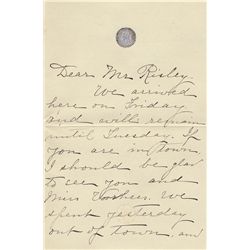 Dear Mr. Risley.
We arrived
here on Friday
and will remain
until Tuesday. If
you are in town
I should be glad
to see you and
Miss Voorhees. We
spent yesterday
out of town and